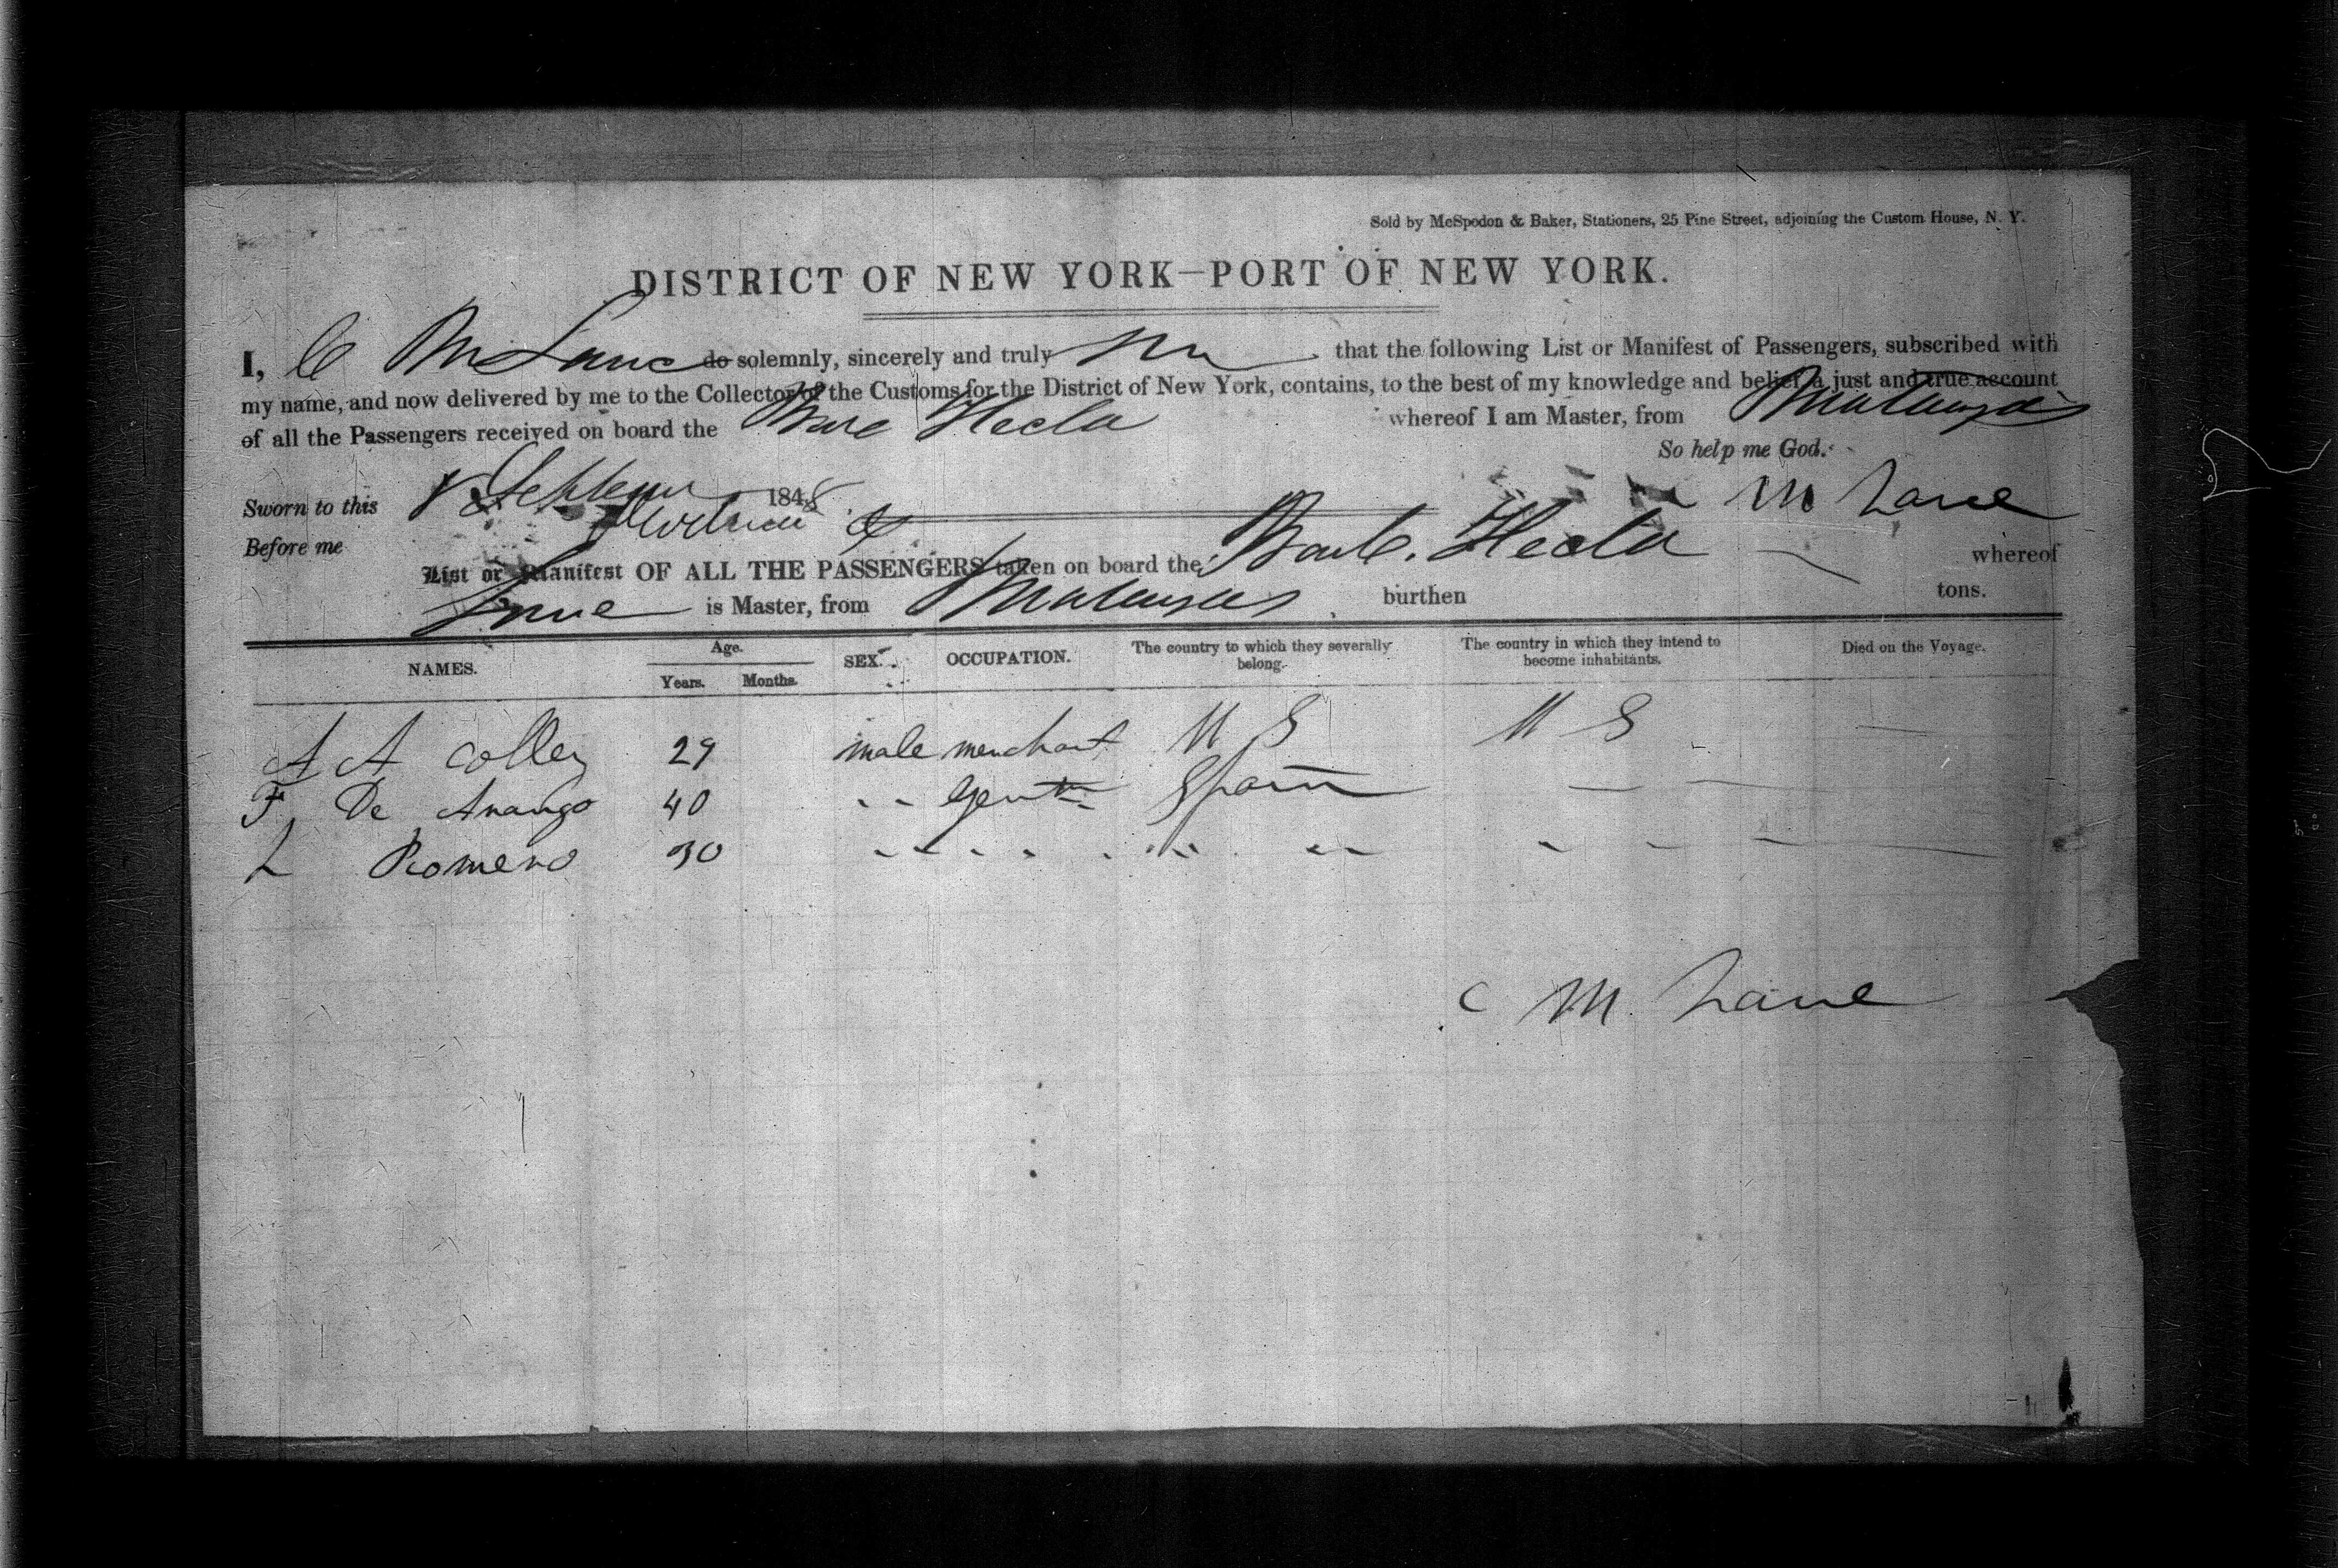 Sold by McSpedon & Baker, Stationers, 25 Pine Street, adjoining the Custom House, N. Y.
DISTRICT OF NEW YORK—PORT OF NEW YORK.
I, C M Lane do solemnly, sincerely and truly that the following List or Manifest of Passengers, subscribed with
my name, and now delivered by me to the Collector of the Customs for the District of New York, contains, to the best of my knowledge and belief, a just and true account
of all the Passengers received on board the Hecla whereof I am Master, from Matanzas
So help me God.
Sworn to this 1848 M Lane
Before me
List or Manifest OF ALL THE PASSENGERS taken on board the Bark Hecla whereof
Lane is Master, from Matanzas, burthen tons.
NAMES. Age. Years. Months. SEX. OCCUPATION. The country to which they severally belong. The country in which they intend to become inhabitants. Died on the Voyage.
A A Colley 29 male merchant U S U S
F De Arango 40 " Gentn Spain
L Romero 30
C M. Lane